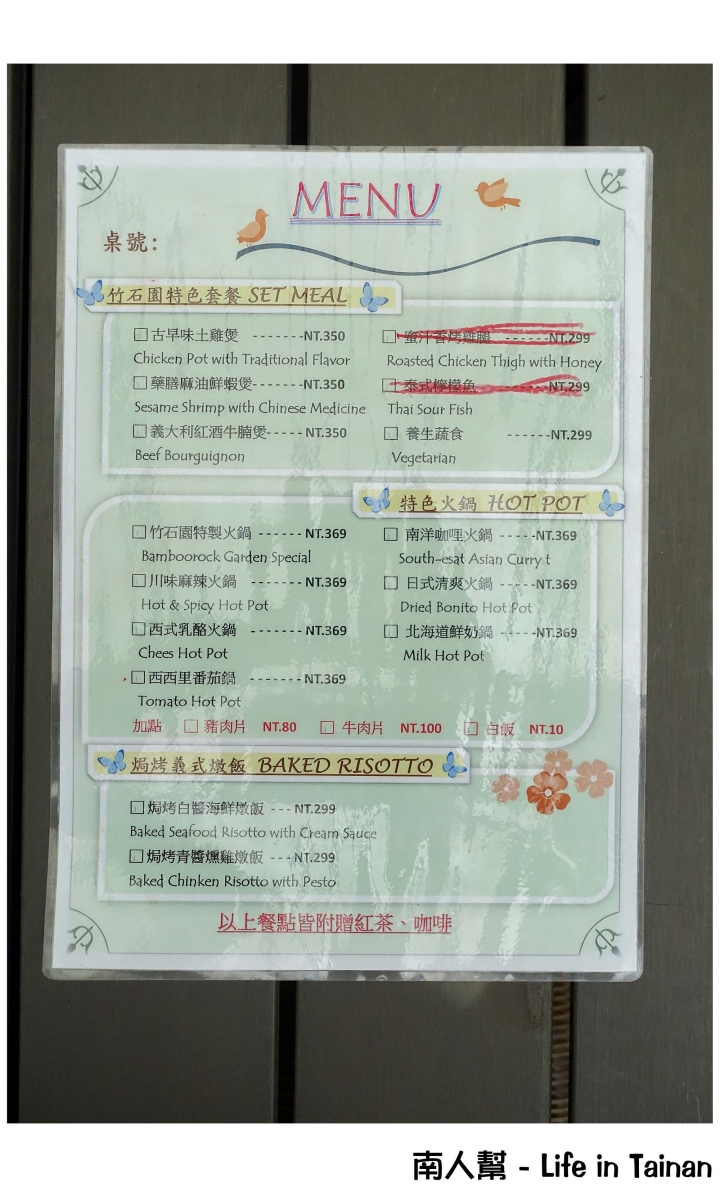 MENU
桌號：
竹石園特色套餐 SET MEAL
□古早味土雞煲 -------NT.350
Chicken Pot with Traditional Flavor
□藥膳麻油鮮蝦煲------NT.350
Sesame Shrimp with Chinese Medicine
□義大利紅酒牛腩煲-----NT.350
Beef Bourguignon
□ 蜜汁香烤雞腿 ------NT.299
Roasted Chicken Thigh with Honey
□ 泰式檸檬魚 -------NT.299
Thai Sour Fish
□ 養生蔬食 ------NT.299
Vegetarian
特色火鍋 HOT POT
□竹石園特製火鍋 ------- NT.369
Bamboorock Garden Special
□川味麻辣火鍋 -------- NT.369
Hot & Spicy Hot Pot
□西式乳酪火鍋 -------- NT.369
Chees Hot Pot
□西西里番茄鍋 --------NT.369
Tomato Hot Pot
□ 南洋咖哩火鍋 -----NT.369
South-esat Asian Curry t
□ 日式清爽火鍋 ------NT.369
Dried Bonito Hot Pot
□ 北海道鮮奶鍋 -----NT.369
Milk Hot Pot
加點 □ 豬肉片 NT.80 □ 牛肉片 NT.100 □ 白飯 NT.10
焗烤義式燉飯 BAKED RISOTTO
□焗烤白醬海鮮燉飯 ---NT.299
Baked Seafood Risotto with Cream Sauce
□焗烤青醬燻雞燉飯 ---NT.299
Baked Chinken Risotto with Pesto
以上餐點皆附贈紅茶、咖啡
南人幫 - Life in Tainan